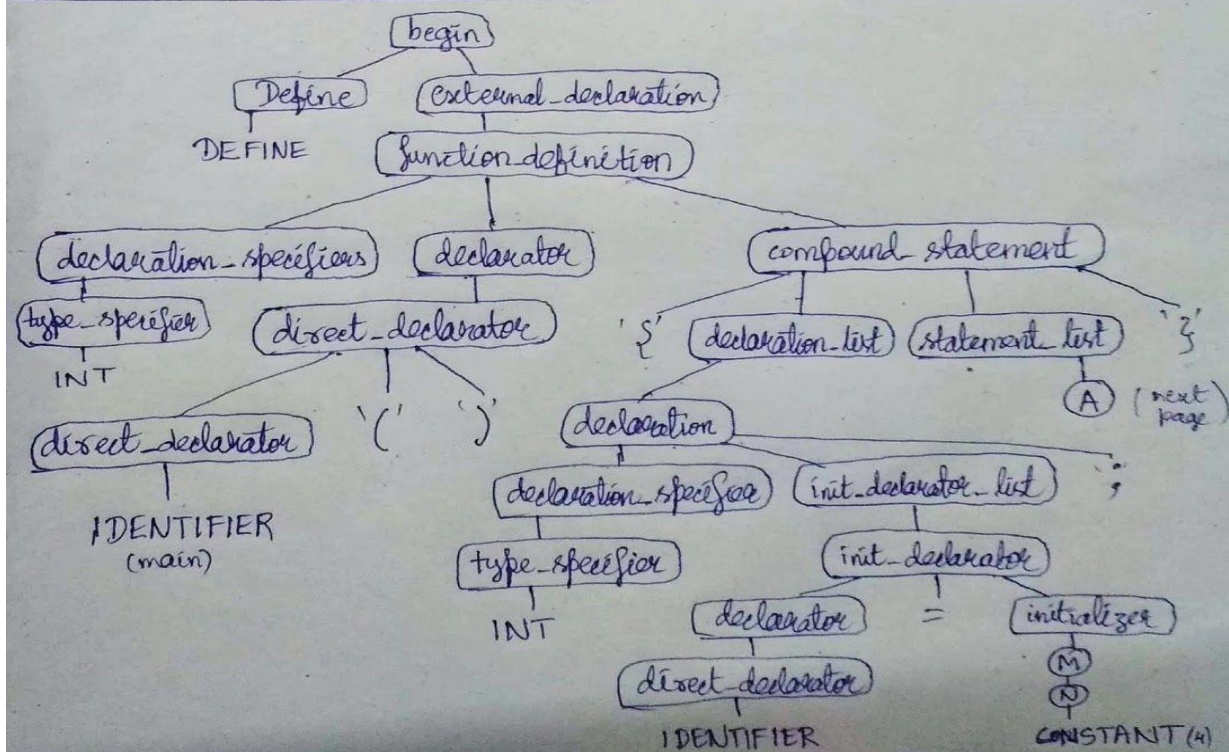 begin
Define external_declaration
DEFINE function_definition
declaration_specifiers declarator compound_statement
type_specifier direct_declarator '{' declaration_list statement_list '}'
INT A (next page)
direct_declarator '(' ')' declaration
declaration_specifier init_declarator_list ';'
IDENTIFIER
(main) type_specifier init_declarator
INT declarator = initializer
direct_declarator M
N
IDENTIFIER CONSTANT (4)